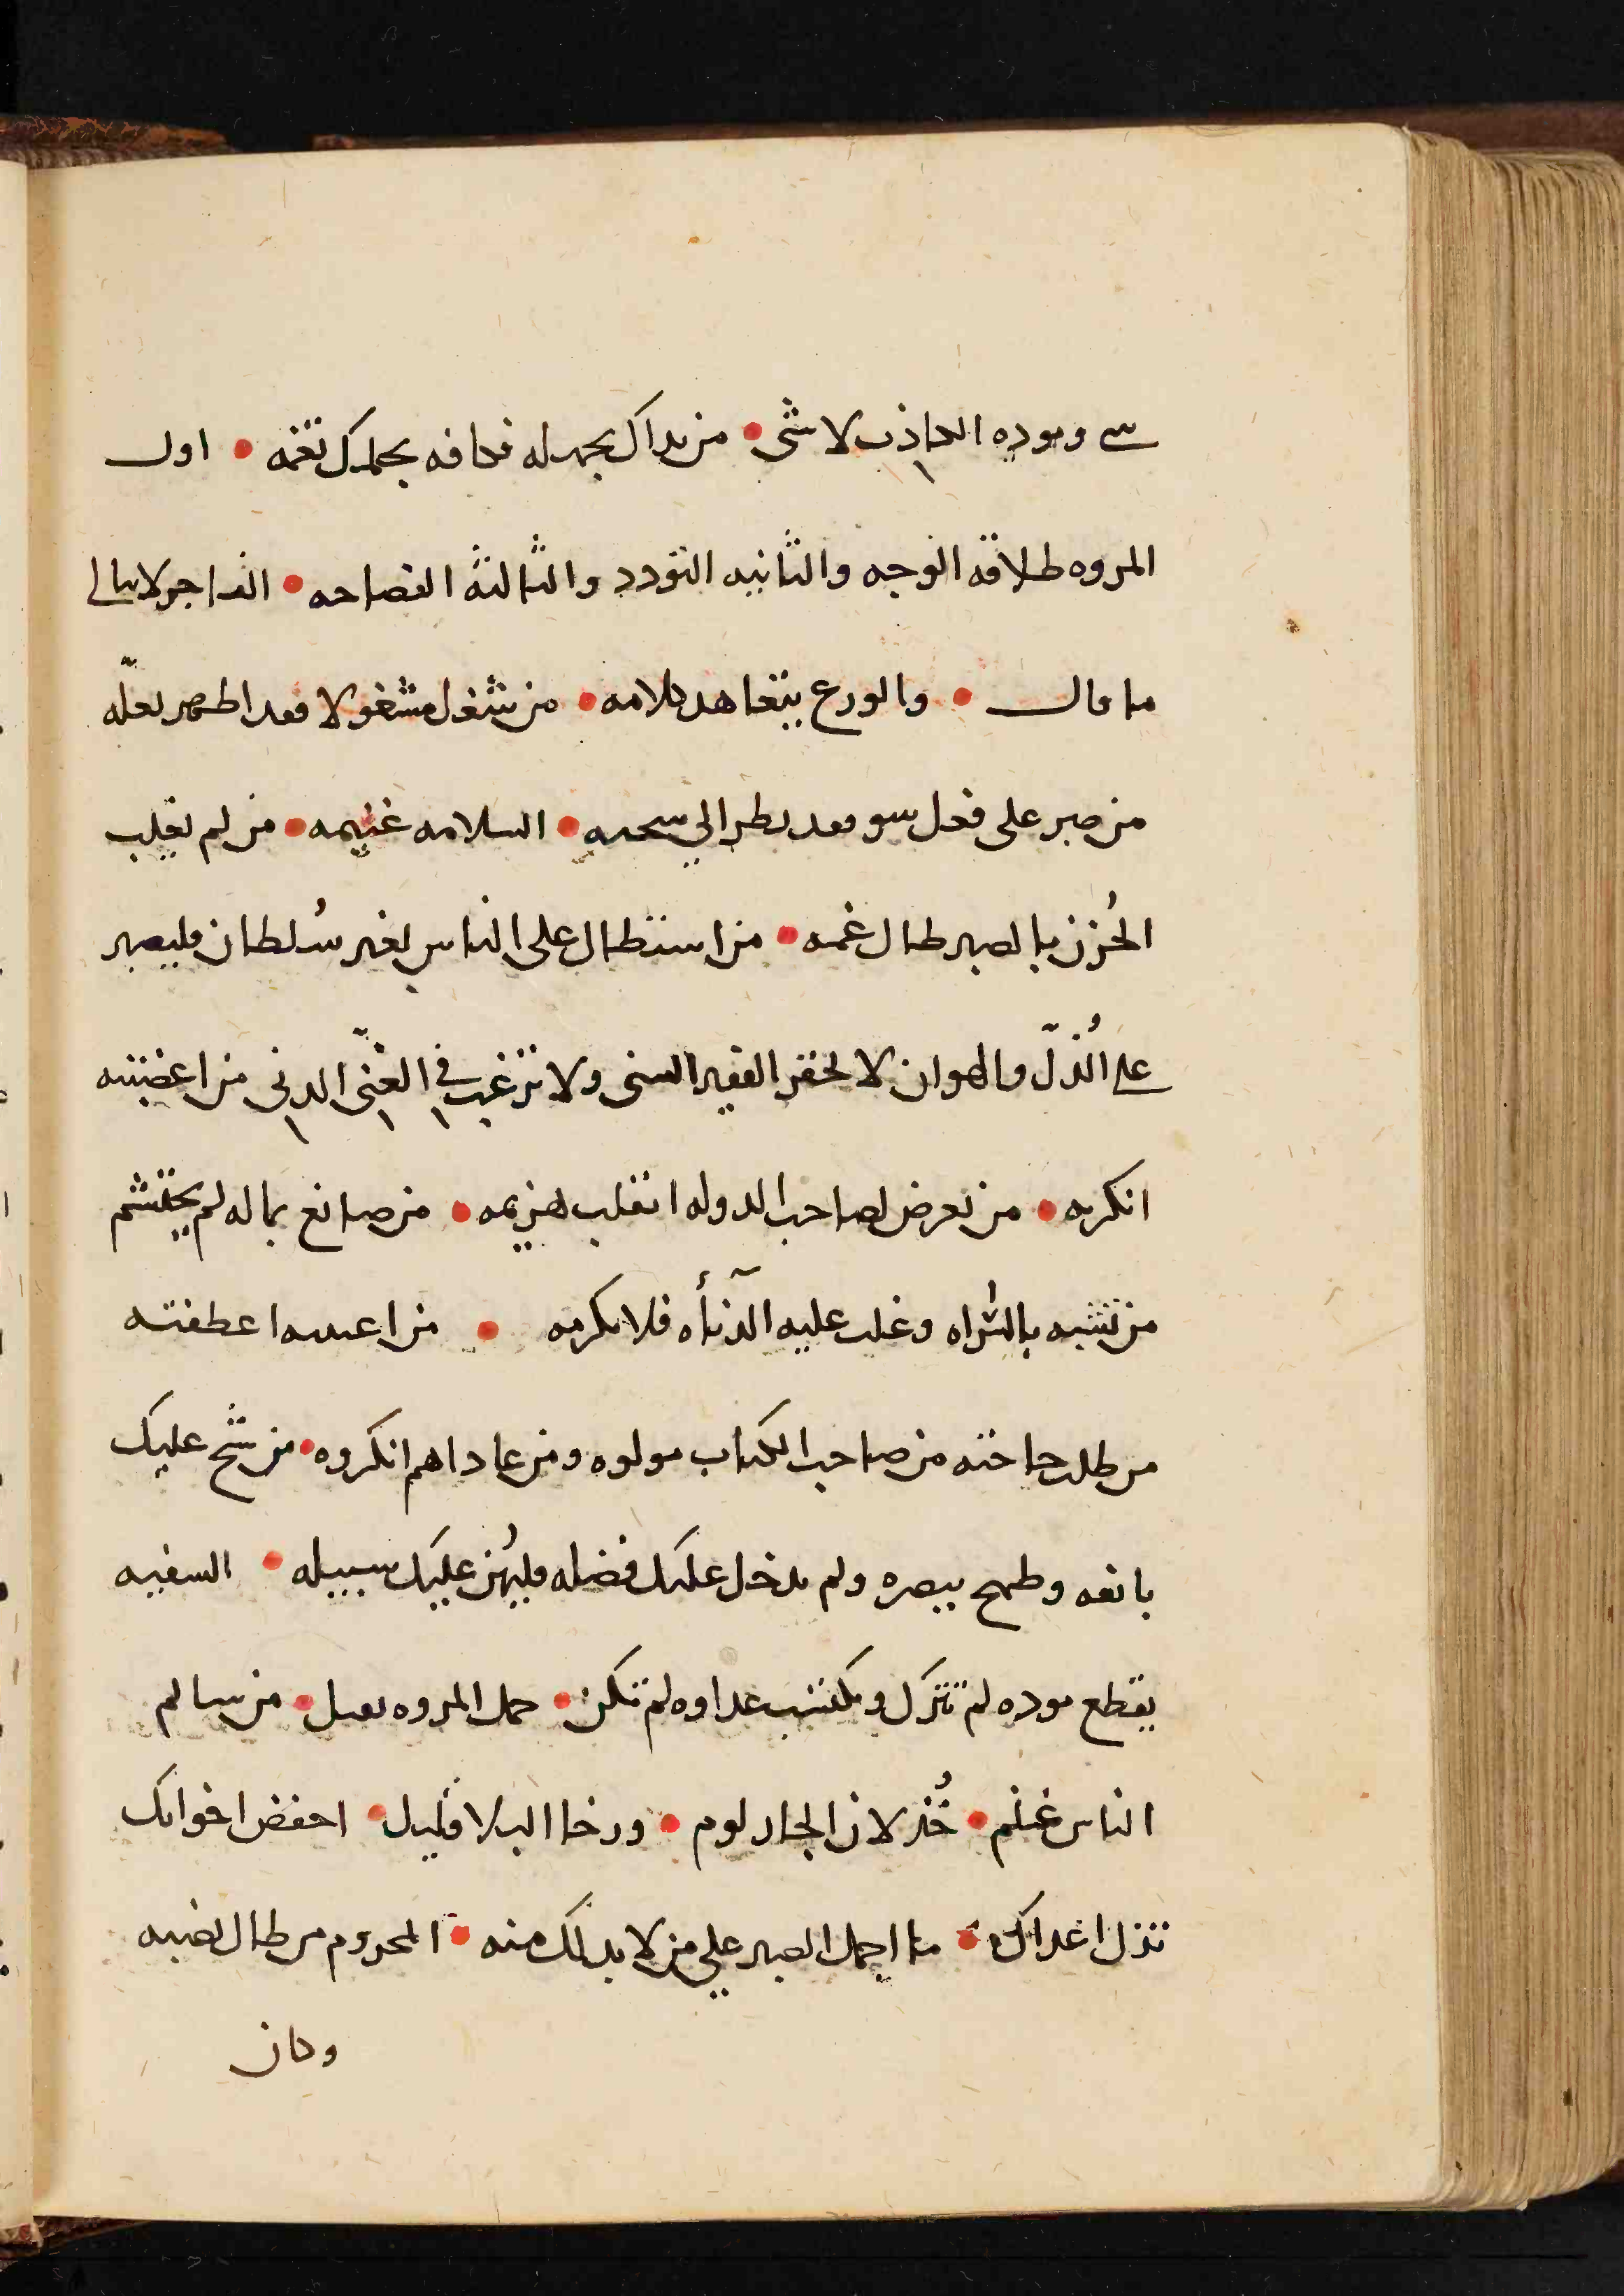 شي وموده الكاذب لاشى • من بداك بجهله فكافه بحلمك تغمه • اول
المروه طلاقه الوجه والثانيه التودد والثالثه الفصاحه • الفاجر لا يبالي
ما قال • والورع يتعاهد كلامه • من شغل مشغولا فقد اظهر لعلّه
من صبر على فعل سو فقد نظر الي • السلامه غنيمه • من لم يغلب
الحُزن بالصبر طال غمه • من استطال على الناس بغير سُلطان فليصبر
على الُذلّ والهوان لا تحقر الفقير السخى ولا ترغب في الغنّى الدنى من اغضبته
انكرته • من تعرض لصاحب الدوله انقلب هزيمه • من صانع بماله لم يحتشم
من تشبه بالشراه وغلب عليه الدنأه فلا تكرمه • من اعطفته
من طلب حاجته من صاحب الكتاب مولوه ومن عاداهم انكروه • من شح عليك
بانفه وطمح ببصره ولم يدخل عليك فضله فليهُن عليك سبيله • السفيه
يقطع موده لم تترك ويكتسب عداوه لم تكن • حمل المروه ثقيل • من سالم
الناس غنم • خُذلان الجار لوم • ورخا البلا قليل • احفض اخوانك
تذل اعداك • ما اجمل الصبر علي من لا بد لك منه • المحروم من طال نصبه
وكان